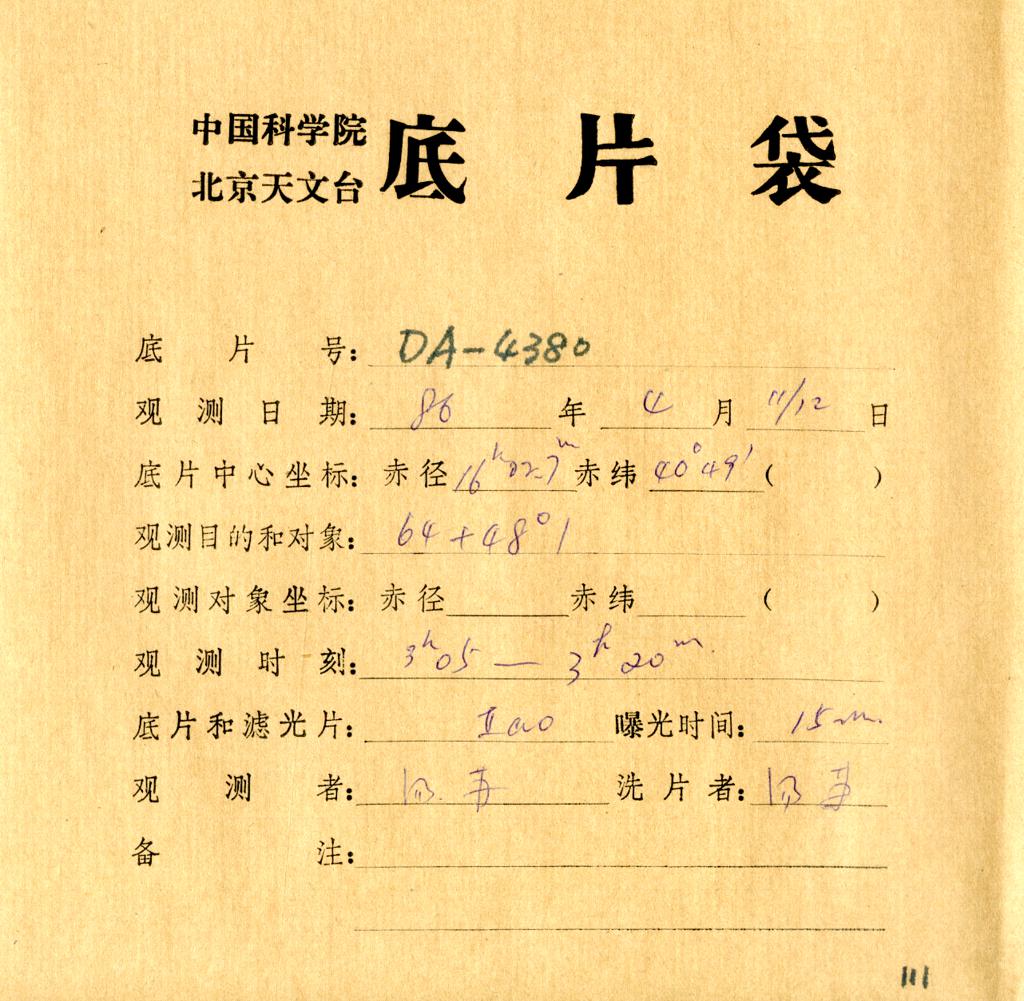 中国科学院
北京天文台 底片袋
底片号: DA-4380
观测日期: 86年 4月 11/12日
底片中心坐标: 赤径 16ʰ02.7ᵐ 赤纬 40°49′ ( )
观测目的和对象: 64+48°1
观测对象坐标: 赤径 赤纬 ( )
观测时刻: 3ʰ05 — 3ʰ20ᵐ.
底片和滤光片: IIaO 曝光时间: 15m.
观测者: 洗片者:
备注:
111